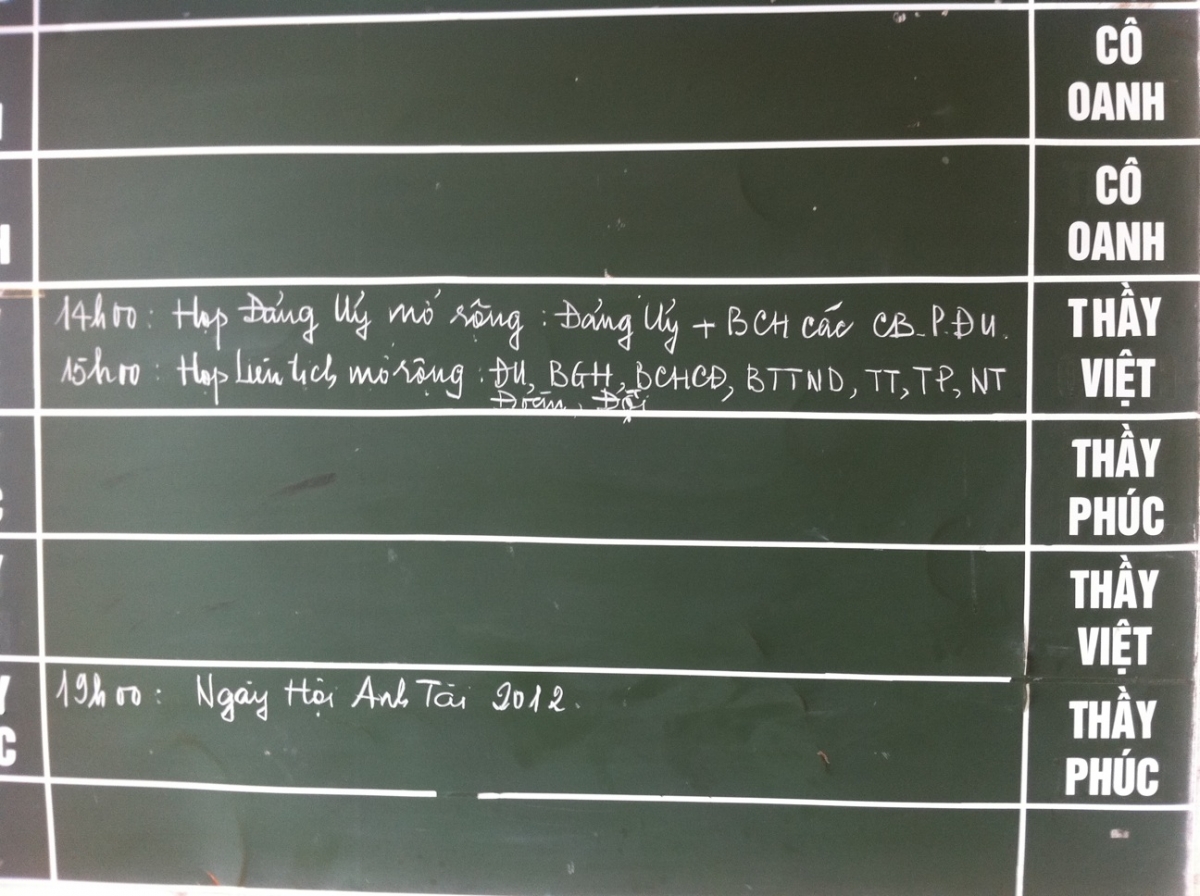 CÔ
OANH
CÔ
OANH
14h00: Họp Đảng Uỷ mở rộng: Đảng Uỷ + BCH các CB-P.ĐU.
15h00: Họp Liên tịch mở rộng: ĐU, BGH, BCHCĐ, BTTND, TT, TP, NT
Đoàn, Đội
THẦY
VIỆT
THẦY
PHÚC
THẦY
VIỆT
19h00: Ngày Hội Anh Tài 2012.
THẦY
PHÚC